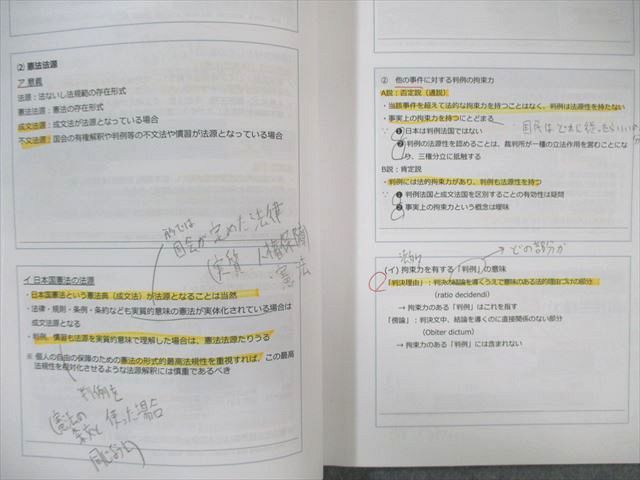 ② 憲法法源
ア 意義
法源：法ないし法規範の存在形式
憲法法源：憲法の存在形式
成文法源：成文法が法源となっている場合
不文法源：国会の有権解釈や判例等の不文法や慣習が法源となっている場合
国会が定めた法律
(実質 人権保障
憲法
イ 日本国憲法の法源
・日本国憲法という憲法典（成文法）が法源となることは当然
・法律・規則・条例・条約なども実質的意味の憲法が実体化されている場合は
成文法源となる
・判例、慣習も法源を実質的意味で理解した場合は、憲法法源たりうる
※ 個人の自由の保障のための憲法の形式的最高法規性を重視すれば、この最高
法規性を相対化させるような法源解釈には慎重であるべき
判例を
憲法の
条文と 使った場合
同じ
② 他の事件に対する判例の拘束力
A説：否定説（通説）
・当該事件を超えて法的な拘束力を持つことはなく、判例は法源性を持たない
・事実上の拘束力を持つにとどまる
∵ ❶ 日本は判例法国ではない
❷ 判例の法源性を認めることは、裁判所が一種の立法作用を営むことにな
り、三権分立に抵触する
国民は どれに従ったらいいのか
B説：肯定説
・判例には法的拘束力があり、判例も法源性を持つ
∵ ❶ 判例法国と成文法国を区別することの有効性は疑問
❷ 事実上の拘束力という概念は曖昧
どの部分が
(イ) 拘束力を有する「判例」の意味
「判決理由」：判決の結論を導くうえで意味のある法的理由づけの部分
(ratio decidendi)
→ 拘束力のある「判例」はこれを指す
「傍論」：判決文中、結論を導くのに直接関係のない部分
(Obiter dictum)
→ 拘束力のある「判例」には含まれない